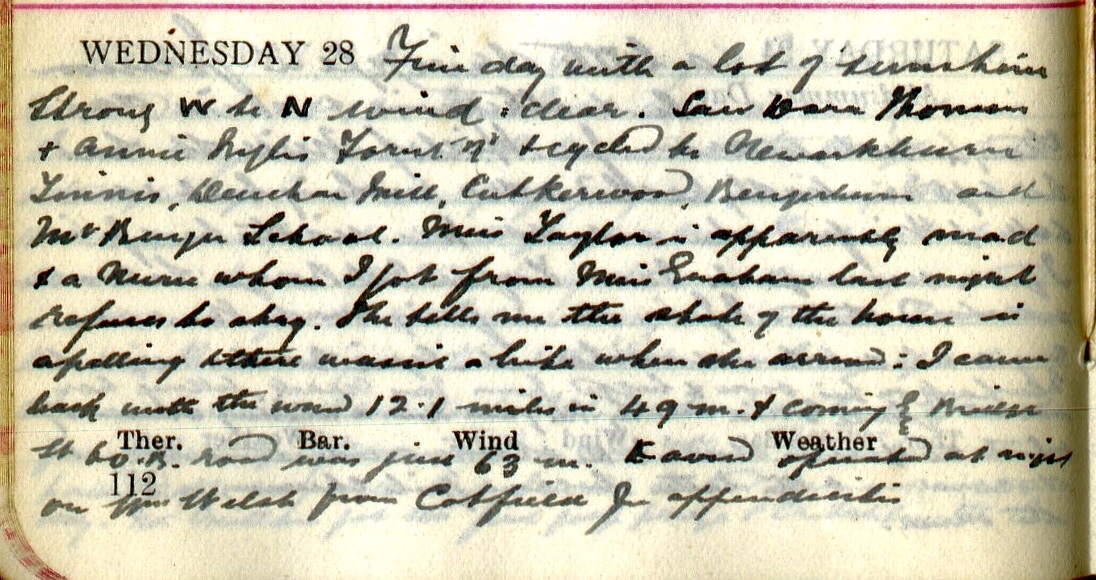 WEDNESDAY 28 Fine day with a lot of sunshine
Strong W to N wind : clear. Saw Dora Thomson
+ Annie Inglis Forest & cycled to Newarkburn
Tinnis, Deuchar Mill, Bengerburn and
Mt Benger School. Miss Taylor is apparently mad
& a Nurse whom I got from Miss Graham last night
refuses to stay. She tells me the state of the house is
apalling & there wasn't a bite when she arrived : I came
back with the wind 12.1 miles in 49 m. & coming Bridge
Ther. Bar. Wind Weather
St to road was just 63 m. operated at night
112
on Wm Welsh from for appendicitis